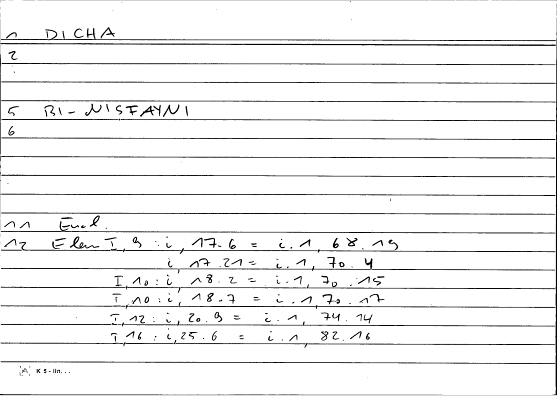 1 DICHA
2
5 BI-NISFAYNI
6
11 Eucl.
12 Elem I, 9 : i, 17.6 = i.1, 68.19
i, 17.21 = i.1, 70.4
I, 10 : i, 18.2 = i.1, 70.15
I, 10 : i, 18.7 = i.1, 70.17
I, 12 : i, 20.9 = i.1, 74.14
I, 16 : i, 25.6 = i.1, 82.16
K 5 - lin...